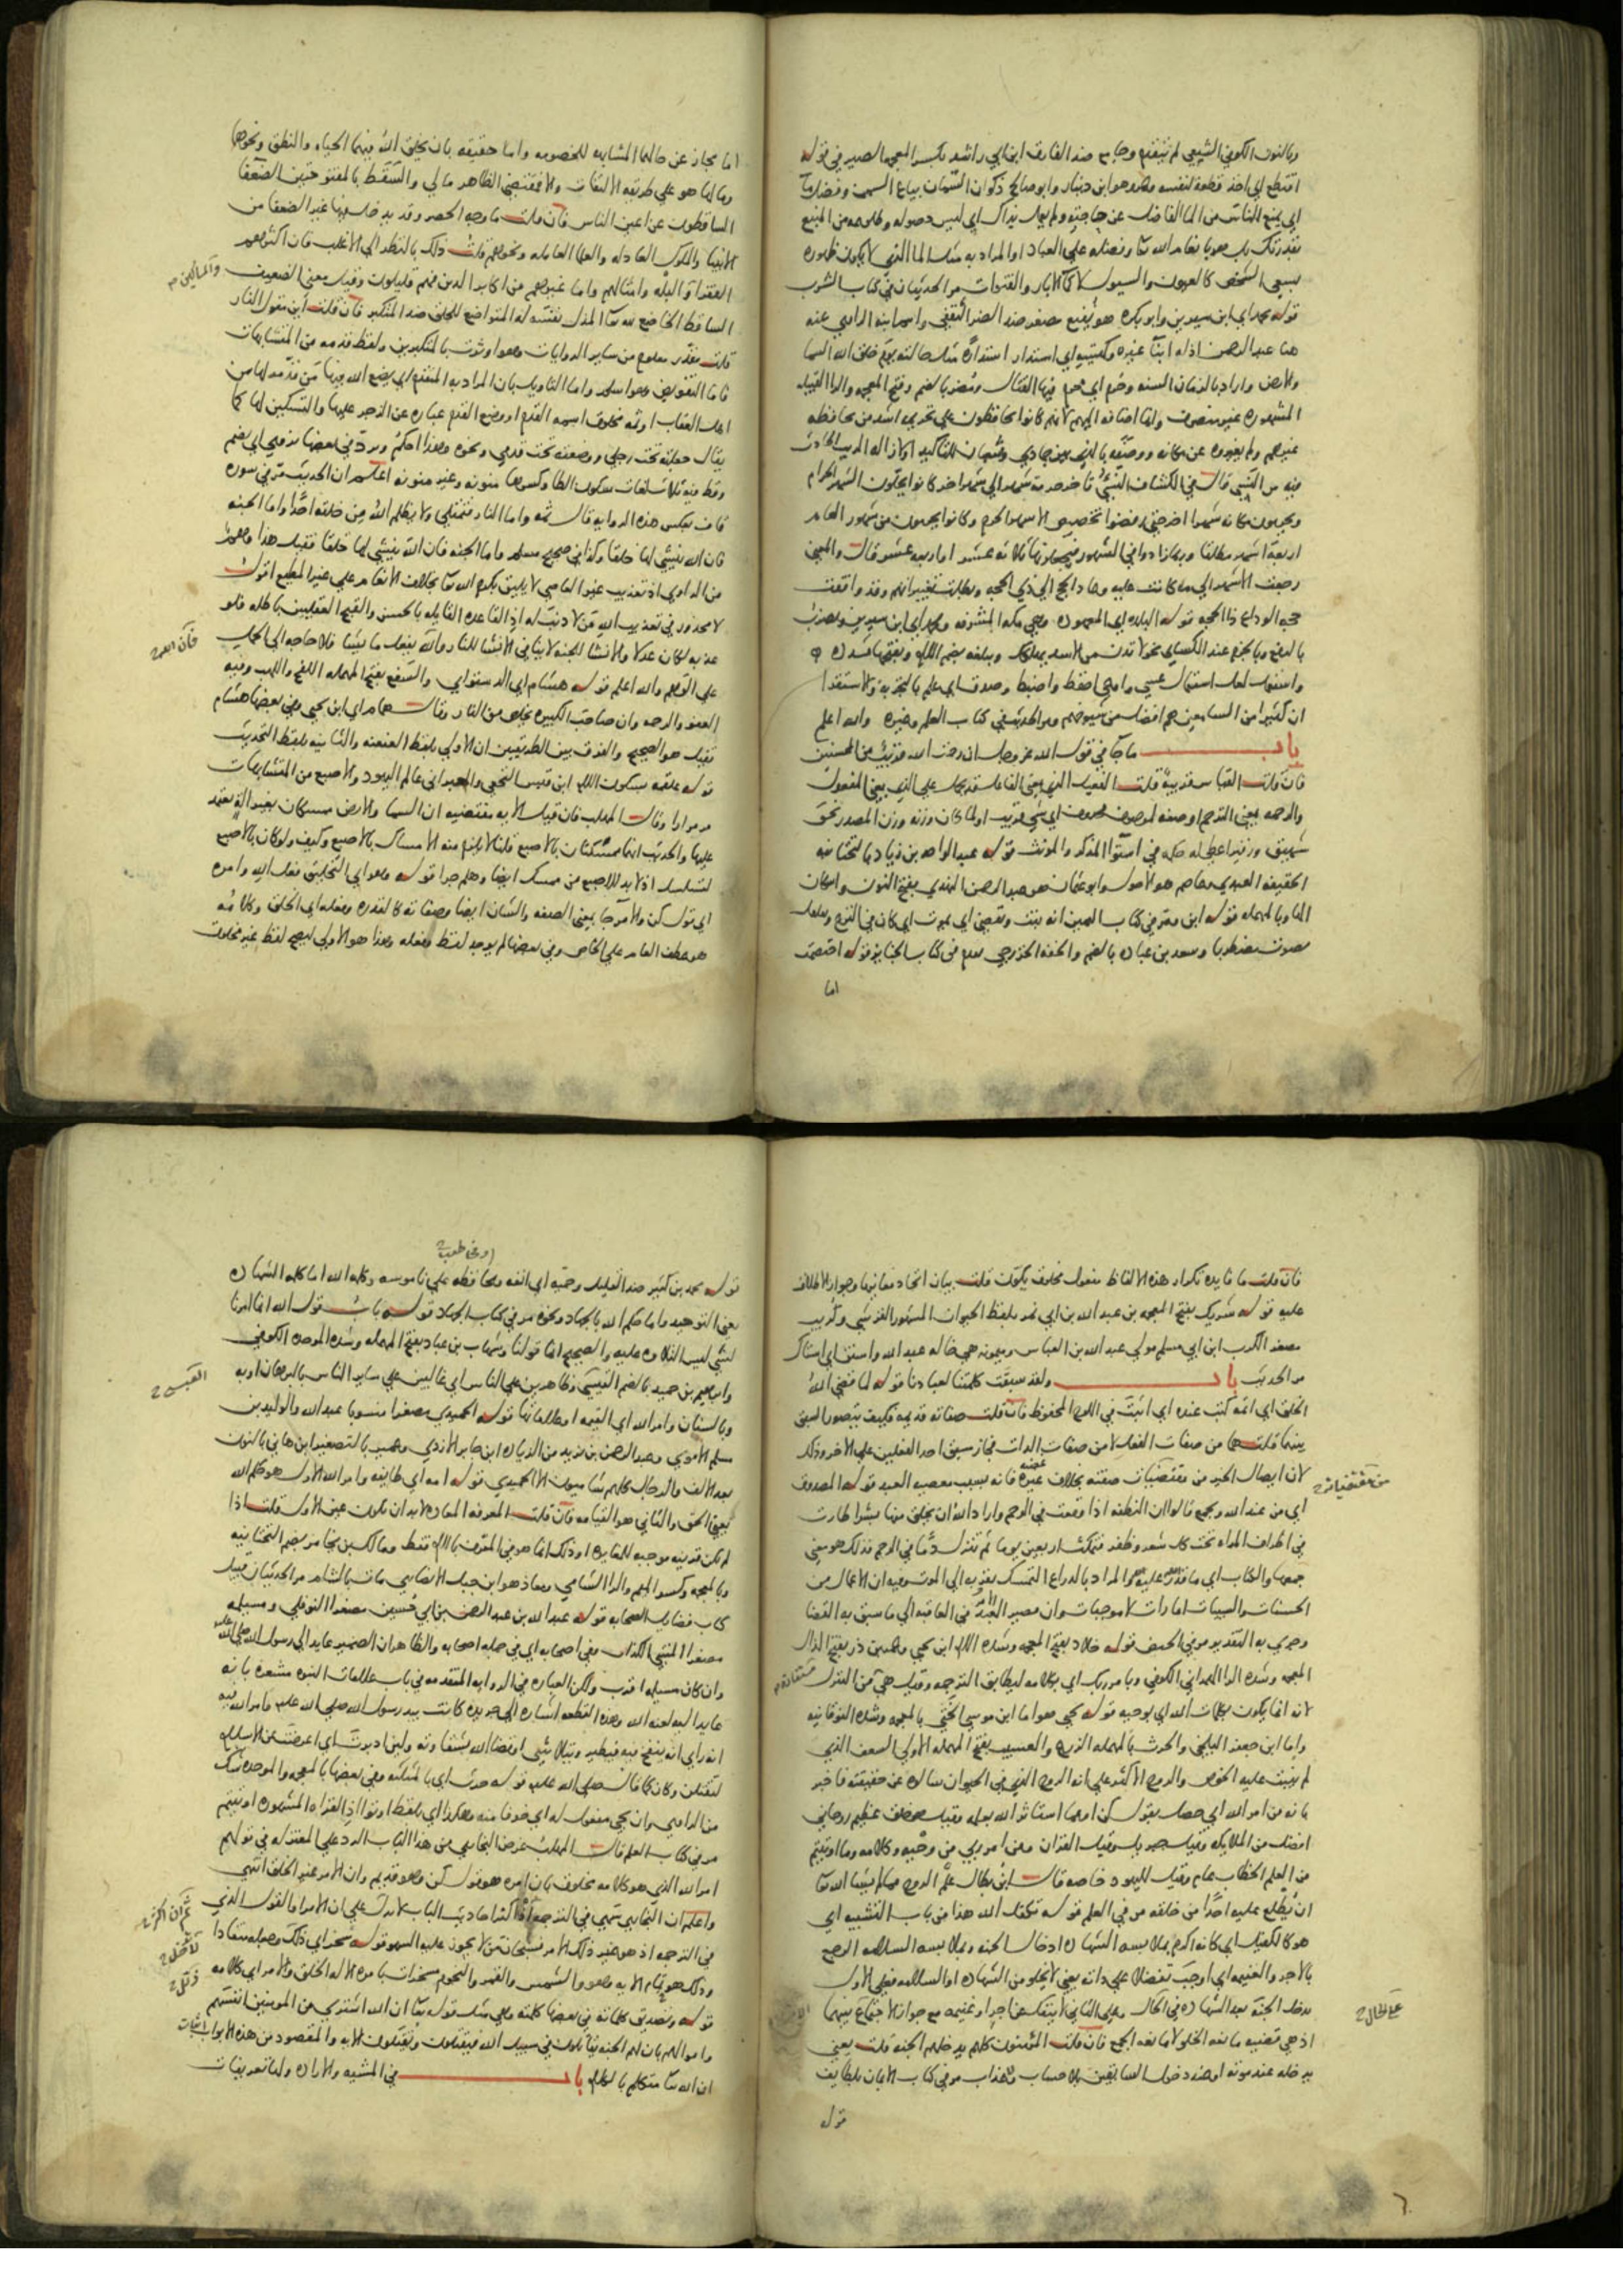 وبالنون الكوفي الشيعي لم ينتفع وجامع ضد الفارق ابن ابي راشد بكسر المعجمة الصيرفي قوله
اقتطع اي اخذ قطعة لنفسه وعمرو هو ابن دينار وابو صالح ذكوان السمان بياع السمن وفضل ماء
اي يمنع الناس من الماء الفاضل عن حاجته ولم تعمل يداك اي ليس حصوله وطلوعه من المنبع
بقدرتك بل هو بانعام الله تعا وفضله علي العباد او المراد به مثل الماء الذي لا يكون ظهوره
بسعي الشخص كالعيون والسيول لا كماء الآبار والقنوات مر الحديثان في كتاب الشرب
قوله محمد اي ابن سيرين وابو بكرة هو نفيع مصغر ضد الضر الثقفي واسم ابنه الراوي عنه
هنا عبد الرحمن اذ له ابناء غيره وكهيئته اي استدار استدارة مثل حالته يوم خلق الله السما
والارض واراد بالزمان السنة وحرم اي محرم فيها القتال ومضر بالضم وفتح المعجمة والراء القبيلة
المشهورة غير منصرف وانما اضافه اليهم لانهم كانوا يحافظون علي تحريمه اشد من محافظة
غيرهم ولم يغيروه عن مكانه ووصفه بالذي بين جمادي وشعبان للتأكيد او لازالة الريب الحادث
فيه من النسي قال في الكشاف النسئ تأخير حرمة شهر الي شهر اخر كانوا يحلون الشهر الحرام
ويحرمون مكانه شهرا اخر حتي رفضوا تخصيص الاشهر الحرم وكانوا يحرمون من شهور العام
اربعة اشهر مطلقا وربما زادوا في الشهور فيجعلونها ثلاثة عشر او اربعة عشر قال والمعني
رجعت الاشهر الي ما كانت عليه وعاد الحج الي ذي الحجة وبطلت تغييراتهم وقد وافقت
حجة الوداع ذا الحجة قوله البلدة اي المعهودة وهي مكة المشرفة ومحمد اي ابن سيرين ويضرب
بالرفع وبالجزم عند الكسائي نحو لا تدن من الاسد يأكلك ويبلغه بضم اللام وبفتحها مشددة
واستعمل لعل استعمال عسي واوعي احفظ واضبط وصدق اي علم بالتجربة والاستقراء
ان كثيرا من السامعين هم افضل من شيوخهم ومر الحديث في كتاب العلم وغيره والله اعلم
باب ما جاء في قول الله عز وجل ان رحمت الله قريب من المحسنين
فان قلت القياس قريبة قلت الفعيل الذي بمعني الفاعل قد يحمل علي الذي بمعني المفعول
والرحمة بمعني الترحم او صفة لموصوف محذوف اي شي قريب او لما كان وزنه وزن المصدر نحو
شهيق وزفير اعطي له حكمه في استواء المذكر والمونث قوله عبد الواحد بن زياد بالتحتانية
الخفيفة العبدي وعاصم هو الاحول وابو عثمان هو عبد الرحمن النهدي بفتح النون واسكان
الهاء وبالمهملة قوله ابن وقد مر في كتاب المرضي انه بنت ويقضي اي يموت اي كان في النزع ويقلقل
بصوت مضطربا وسعد بن عبادة بالضم والخفة الخزرجي مع في كتاب الجنايز قوله اختصمت
اما
اما مجاز عن حالهما المشابهة للخصومة واما حقيقة بان يخلق الله فيهما الحياة والنطق ونحوهما
وما لها هو علي طريقة الالتفات والا فمقتضي الظاهر ما لي والسقط بالمفتوحتين الضعفاء
الساقطون عن اعين الناس فان قلت ما وجه الحصر وقد يدخل فيها غير الضعفا من
الانبياء والملوك العادلة والعلما العاملة ونحوهم قلت ذلك بالنظر الي الاغلب فان اكثرهم
الفقراء والبله وامثالهم واما غيرهم من اكابر الدين فهم قليلون وقيل معني الضعيف
الساقط الخاضع لله تعا المذل نفسه له المتواضع للخلق ضد المتكبر فان قلت اين مقول النار
قلت مقدر معلوم من ساير الروايات وهو اوثرت بالمتكبرين ولفظ قدمه من المتشابهات
فاما التفويض وهو اسلم واما التاويل بان المراد به المتقدم اي يضع الله فيها من قدمه لها من
اهل العذاب او ثم مخلوق اسمه القدم او وضع القدم عبارة عن الزجر عليها والتسكين لها كما
يقال جعلته تحت رجلي ووضعته تحت قدمي ونحوه وهذا احكم ويرد في بعضها يزوي اي يضم
وقط فيه ثلاث لغات سكون الطاء وكسرها منونة وغير منونة اعلم ان الحديث مر في سورة
قاف بعكس هذه الرواية قال ثمة واما النار فتمتلي ولا يظلم الله من خلقه احدا واما الجنة
فان الله ينشي لها خلقا وكذا في صحيح مسلم واما الجنة فان الله ينشي لها خلقا فقيل هذا وهم
من الراوي اذ تعذيب غير العاصي لا يليق بكرم الله تعا بخلاف الانعام علي غير المطيع اقول
لا محذور في تعذيب الله من لا ذنب له اذ القاعدة القايلة بالحسن والقبح العقليين باطلة فلو
عذبه لكان عدلا والانشاء للجنة لا ينافي الانشاء للنار والله يفعل ما يشا فلا حاجة الي الحمل
علي الوهم والله اعلم قوله هشام اي الدستوائي والسفع بفتح المهملة اللفح واللهب وفيه
العفو والرحمة وان صاحب الكبيرة يخلص من النار وقال همام اي ابن يحيي وفي بعضها هشام
فقيل هو الصحيح والفرق بين الطريقين ان الاولي بلفظ العنعنة والثانية بلفظ التحديث
قوله علقمة بسكون اللام ابن قيس النخعي والحبر اي عالم اليهود والاصبع من المتشابهات
مر مرارا وقال المهلب فان قيل الاية مقتضية ان السما والارض ممسكان بغير الة يعتمد
عليها والحديث انهما ممسكتان بالاصبع قلنا لا يلزم منه الامساك بالاصبع وكيف ولو كان بالاصبع
لتسلسل اذ لابد للاصبع من ممسك ايضا وهلم جرا قوله وهو اي التخليق فعل الله وامره
اي قول كن والامر جا بمعني الصفة والشان ايضا وصفاته كالقدرة وفعله اي الخلق وكلامه
هو عطف العام علي الخاص وفي بعضها لم يوجد لفظ وفعله وهذا هو الاولي ليصح لفظ غير مخلوق
والمساكين
فان قلت ما فايدة تكرار هذه الالفاظ مفعول مخلوق مكون قلت بيان اتحاد معانيها وجواز الاطلاق
عليه قوله شريك بفتح المعجمة بن عبد الله بن ابي نمر بلفظ الحيوان المشهور القرشي وكريب
مصغر الكرب ابن ابي مسلم مولي عبد الله بن العباس وميمونة هي خالة عبد الله واستن اي استاك
مر الحديث باب ولقد سبقت كلمتنا لعبادنا قوله لما قضي الله
الخلق اي اتمه كتب عنده اي اثبت في اللوح المحفوظ فان قلت صفاته قديمة فكيف يتصور السبق
بينهما قلت هما من صفات الفعل لا من صفات الذات فجاز سبق احد الفعلين علي الاخر وذلك
لان ايصال الخير من مقتضيات صفته بخلاف غيره فانه بسبب معصية العبد قوله المصدوق
اي من عند الله ويجمع قالوا ان النطفة اذا وقعت في الرحم واراد الله ان يخلق منها بشرا طارت
في اطراف المراة تحت كل شعر وظفر فتمكث اربعين يوما ثم تنزل دما في الرحم فذلك هو معني
جمعها والكتاب اي ما قدر عليه والمراد بالذراع التمسك بقربه الي الموت وفيه ان الاعمال من
الحسنات والسيئات امارات لا موجبات وان مصير الامر في العاقبة الي ما سبق به القضا
وجري به التقدير مر في الحيض قوله خلاد بفتح المعجمة وشدة اللام ابن يحيي وعمر بن ذر بفتح الذال
المعجمة وشدة الراء الهمداني الكوفي وبامر ربك اي بكلامه ليطابق الترجمة وقيل هي من التنزل
لانه انما يكون بكلمات الله اي بوحيه قوله يحيي هو اما ابن موسي الختي بالمعجمة وشدة الفوقانية
واما ابن جعفر البلخي والحرث بالمهملة الزرع والعسيب بفتح المهملة الاولي السعف الذي
لم ينبت عليه الخوص والروح الاكثر علي انه الروح الذي في الحيوان سالوه عن حقيقته فاخبر
بانه من امر الله اي حصل بقول كن او مما استاثر الله بعلمه وقيل هو خلق عظيم روحاني
افضل من الملايكة وقيل جبريل وقيل القران ومن امر ربي من وحيه وكلامه وما اوتيتم
من العلم الخطاب عام وقيل لليهود خاصة قال ابن بطال علم الروح مما لم يشا الله تعا
ان يطلع عليه احدا من خلقه مر في العلم قوله تكفل الله هذا من باب التشبيه اي
هو كالكفيل اي كانه التزم بملابسة الشهادة ادخال الجنة وبملابسة السلامة الرجع
بالاجر والغنيمة اي اوجب تفضلا علي ذاته يعني لا يخلو من الشهادة او السلامة فعلي الاول
يدخل الجنة بعد الشهادة في الحال وعلي الثاني لا ينفك عن اجر او غنيمة مع جواز الاجتماع بينهما
اذ هي قضية مانعة الخلو لا مانعة الجمع فان قلت المؤمنون كلهم يدخلهم الجنة قلت يعني
يدخله عند موته او عند دخول السابقين بلا حساب ولا عذاب مر في كتاب الايمان بلطايف
قوله
قوله محمد بن كثير ضد القليل وحمية اي انفة ومحافظة علي ناموسه وكلمة الله اما كلمة الشهادة
يعني التوحيد واما حكم الله بالجهاد ونحوه مر في كتاب الجهاد قوله باب قول الله انما امرنا
لشي ليس التلاوة عليه والصحيح انما قولنا وشهاب بن عباد بفتح المهملة وشدة الموحدة الكوفي
وابراهيم بن حميد بالضم القيسي وظاهرين علي الناس اي غالبين علي ساير الناس بالبرهان او به
وبالسنان وامر الله اي القيمة او علاماتها قوله الحميدي مصغرا منسوبا عبد الله والوليد بن
مسلم الاموي وعبد الرحمن بن يزيد من الزيادة ابن جابر الازدي وعمير بالتصغير ابن هاني بالنون
بعد الالف والرجال كلهم شاميون الا الحميدي قوله امة اي طايفة وامر الله الاول هو حكم الله
يعني الحق والثاني هو القيامة فان قلت المعرفة المعادة لابد ان تكون عين الاول قلت اذا
لم تكن قرينة موجبة للمغايرة او ذلك انما هو في المعرف باللام فقط ومالك بن يخامر بضم التحتانية
وبالمعجمة وكسر الميم والراء الشامي ومعاذ هو ابن جبل الانصاري مات بالشام مر الحديثان قبيل
كتاب فضايل الصحابة قوله عبد الله بن عبد الرحمن بن ابي حسين مصغرا النوفلي ومسيلمة
مصغرا المتنبي الكذاب وفي اصحابه اي في جملة اصحابه والظاهر ان الضمير عايد الي رسول الله صلي الله عليه
وان كان مسيلمة اقرب ولكن العبارة في الرواية المتقدمة في باب علامات النبوة مشعرة بانه
عايد اليه لعنه الله وهذه القطعة اشارة الي جريدة كانت بيد رسول الله صلي الله عليه وامر الله فيه
انه راي انه ينفخ فيه فيطير وقيل شي اقتضا الله بشقاوته ولين ادبرت اي اعرضت عن الاسلام
ليقتلن وكان كما قال صلي الله عليه قوله حرث اي بالمثلثة وفي بعضها بالمعجمة والموحدة شك
من الراوي وان يجي مفعول له اي خوفا منه وهكذا اي بلفظ اوتوا اذ القراءة المشهورة اوتيتم
مر في كتاب العلم قال المهلب غرض البخاري من هذا الباب الرد علي المعتزلة في قولهم
امر الله الذي هو كلامه مخلوق بان امره هو قول كن وهو قديم وان الامر غير الخلق انتهي
واعلم ان البخاري سمي في الترجمة اذا اكثر احاديث الباب لا تدل علي ان الامر القول الذي
في الترجمة اذ هو غير ذلك الامر فسبحان من لا يجوز عليه السهو قوله سخر اي ذلل وجعله منقادا
وذلك هو تمام الاية وهو والشمس والقمر والنجوم مسخرات بامره الا له الخلق والامر اي كلامه
قوله وتصديق كلماته في بعضها كلمته وهي مثل قوله تعا ان الله اشتري من المومنين انفسهم
واموالهم بان لهم الجنة يقاتلون في سبيل الله فيقتلون ويقتلون الاية والمقصود من هذه الابواب اثبات
ان الله تعا متكلم بالكلام باب في المشية والارادة ولها تعريفات